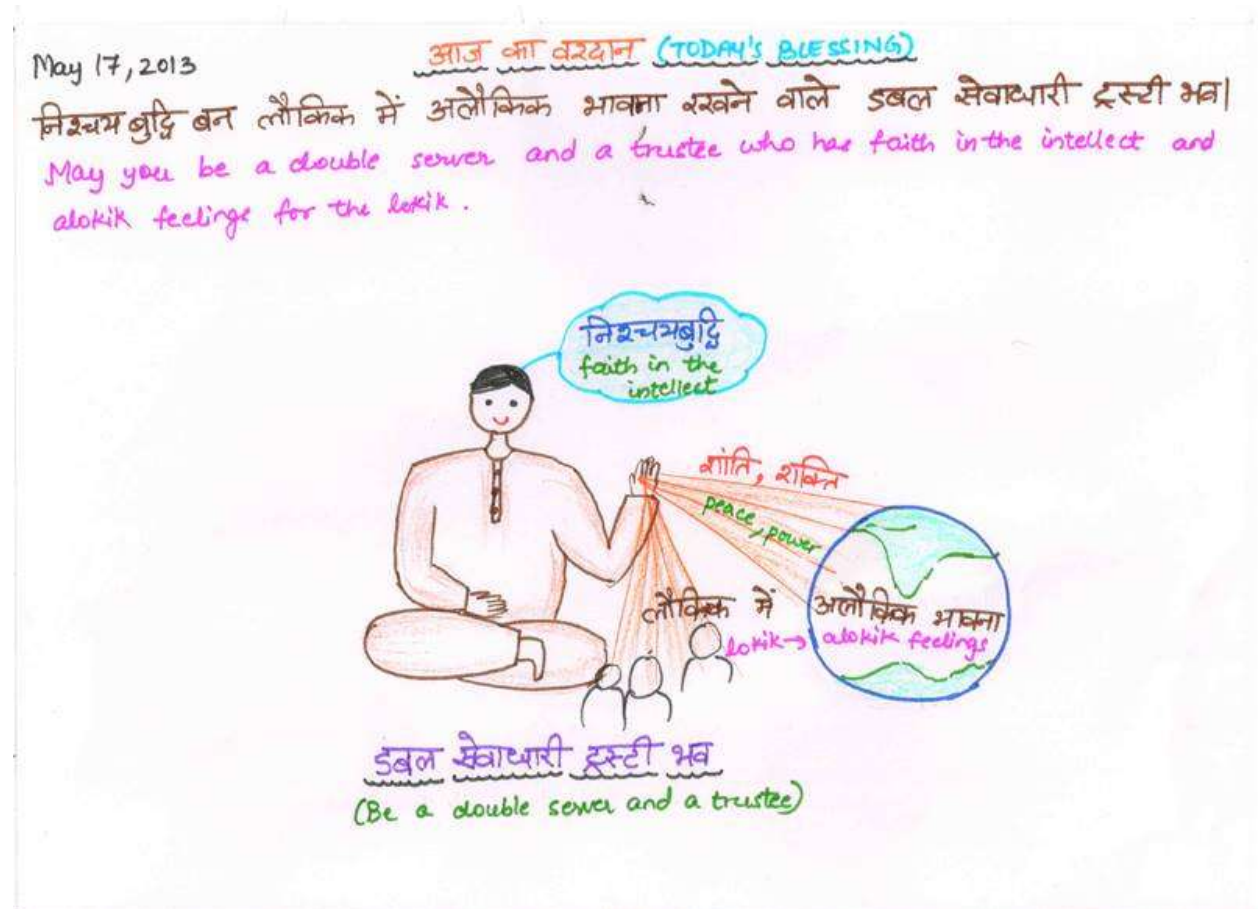 May 17, 2013
आज का वरदान (TODAY'S BLESSING)
निश्चय बुद्धि बन लौकिक में अलौकिक भावना रखने वाले डबल सेवाधारी ट्रस्टी भव|
May you be a double server and a trustee who has faith in the intellect and
alokik feelings for the lokik.
निश्चयबुद्धि
faith in the
intellect
शांति, शक्ति
peace, power
लौकिक में अलौकिक भावना
lokik → alokik feelings
डबल सेवाधारी ट्रस्टी भव
(Be a double server and a trustee)